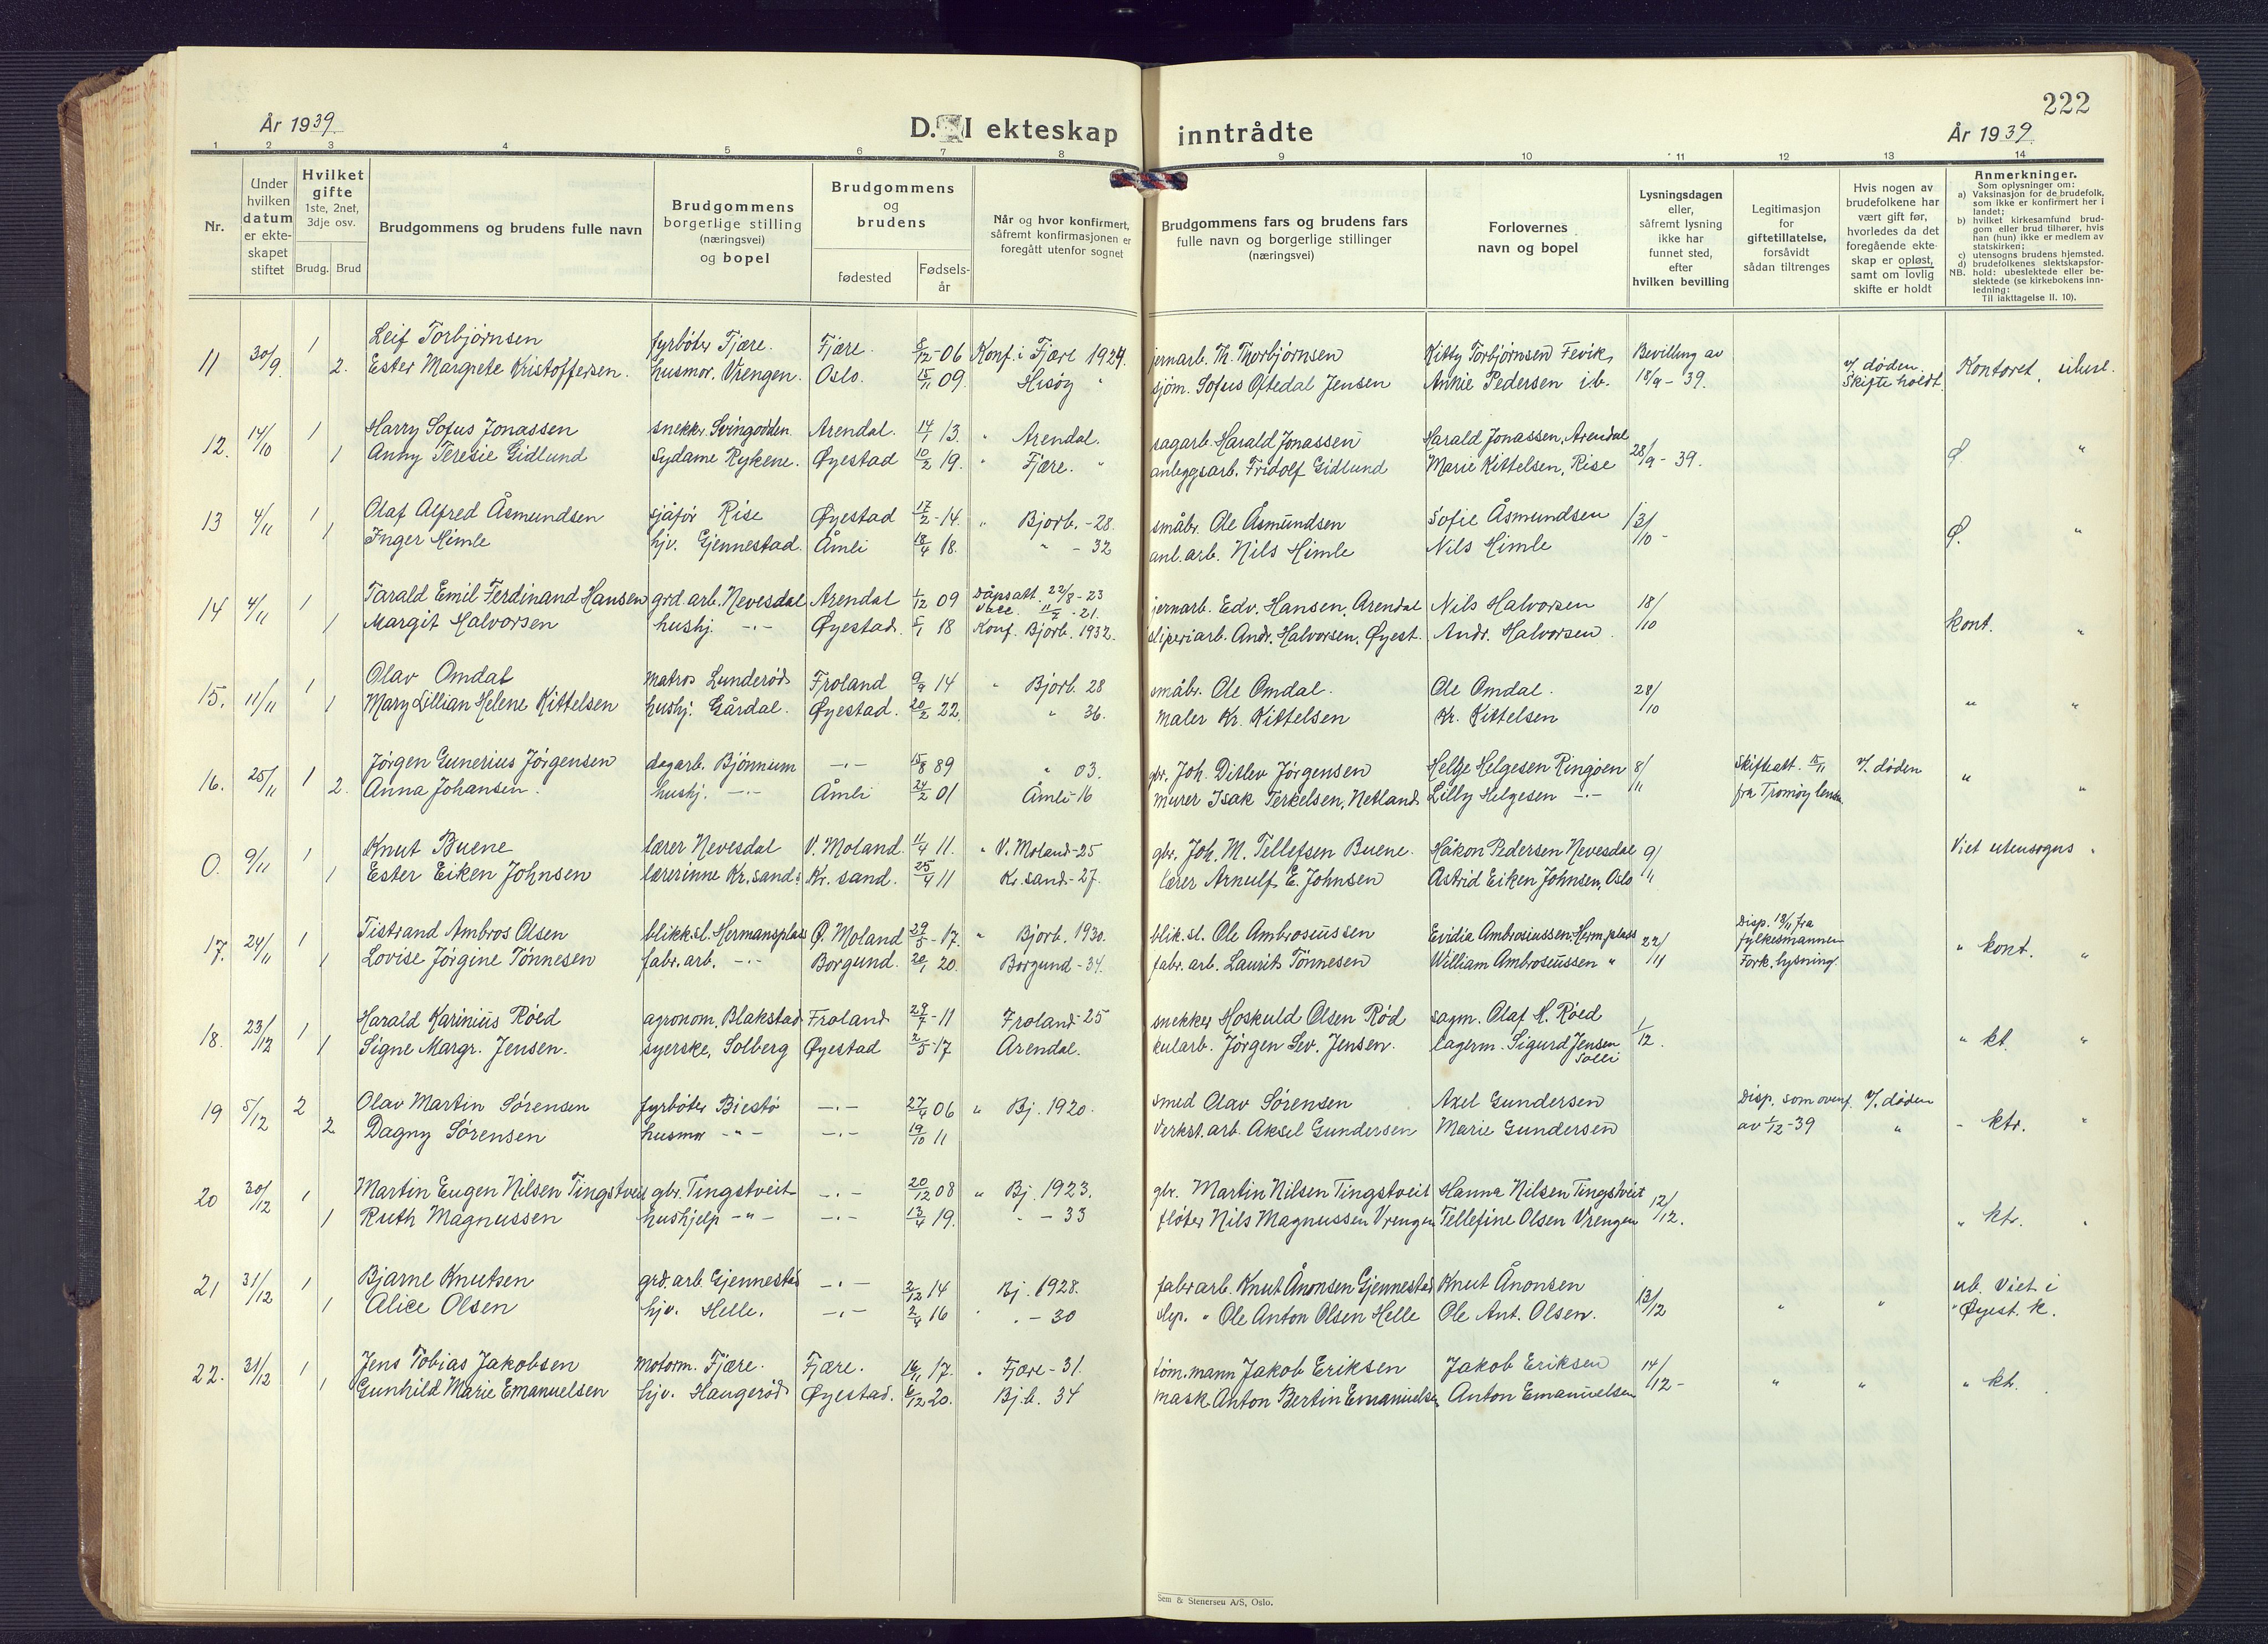 222
År 1939.
D. I ekteskap inntrådte
År 1939.
1 2 3 4 5 6 7 8 9 10 11 12 13 14
Nr.
Under hvilken datum er ekte- skapet stiftet
Hvilket gifte 1ste, 2net, 3dje osv.
Brudg. Brud
Brudgommens og brudens fulle navn
Brudgommens borgerlige stilling (næringsvei) og bopel
Brudgommens og brudens
fødested
Fødsels- år
Når og hvor konfirmert, såfremt konfirmasjonen er foregått utenfor sognet
Brudgommens fars og brudens fars fulle navn og borgerlige stillinger (næringsvei)
Forlovernes navn og bopel
Lysningsdagen eller, såfremt lysning ikke har funnet sted, efter hvilken bevilling
Legitimasjon for giftetillatelse, forsåvidt sådan tiltrenges
Hvis nogen av brudefolkene har vært gift før, hvorledes da det foregående ekte- skap er opløst, samt om lovlig skifte er holdt
Anmerkninger.
Som oplysninger om:
a) Vaksinasjon for de brudefolk, som ikke er konfirmert her i landet;
b) hvilket kirkesamfund brud- gom eller brud tilhører, hvis han (hun) ikke er medlem av statskirken;
c) utensogns brudens hjemsted.
d) brudefolkenes slektskapsfor-
NB. hold: ubeslektede eller be- slektede (se kirkebokens inn- ledning:
Til iakttagelse II. 10).
11 30/9 1 Leif Torbjørnsen fyrbøter Fjære. Fjære. 8/12-06 Konf. i Fjære 1924. jernarb. Th. Thorbjørnsen Kitty Torbjørnsen Fevik, Bevilling av v/ døden.
2. Ester Margrete Kristoffersen. husmor, Vrengen. Oslo. 15/11 09. Hisøy " sjöm. Sofus Oftedal Jensen Annie Pedersen ib. 18/9-39. Skifte holdt. Kontoret,
12. 14/10 1 Harry Sofus Jonassen snekker Svingodden Arendal. 14/1 13. " Arendal. sagarb. Harald Jonassen Harald Jonassen, Arendal
1 Anny Teresie Gidlund Sydame Rykene. Øyestad 10/2 19. " Fjære. " anleggsarb. Fridolf Gidlund Marie Kittelsen, Rise 28/9-39. Ø "
13 4/11 1 Olaf Alfred Åsmundsen sjåför Rise Øyestad 17/2-14. " Bjorb.-28. småbr. Ole Åsmundsen Sofie Åsmundsen 13/10-
1 Inger Himle hjv. Gjennestad. Åmli 18/4 18. " - 32 anl. arb. Nils Himle Nils Himle Ø. "
14 4/11 1 Tarald Emil Ferdinand Hansen grd. arb. Nevesdal Arendal 1/12 09 Dåpsatt. 22/8-23 jernarb. Edv. Hansen, Arendal Nils Halvorsen 18/10
1 Margit Halvorsen hushj. -"- Øyestad. 5/1 18 Konf. Bjorb. 1932. sliperiarb. Andr. Halvorsen, Øyest. Andr. Halvorsen. kont. "
15. 11/11 1 Olav Omdal matros Lunderød Froland 9/9 14 " Bjorb. 28 småbr. Ole Omdal. Ole Omdal. 28/10
1 Mary Lillian Helene Kittelsen hushj. Gårdal. Øyestad. 20/2 22. " 36. maler Kr. Kittelsen Kr. Kittelsen " "
16. 25/11 1 Jørgen Gunerius Jörgensen dagarb. Bjönnum -"- 15/8 89 " 03. gbr. Joh. Ditlev Jørgensen Helge Helgesen Ringøen 8/11 Skifteatt. 15/11 v/. døden "
2. Anna Johansen. hushj. -"- Åmli 24/2 01 Åmli-16 murer Isak Terkelsen, Netland Lilly Helgesen -"- fra Tromøy lensm. "
0. 9/11 1 Knut Buene lærer Nevesdal V. Moland. 11/4 11. " V. Moland-25 gbr. Joh. M. Tellefsen Buene. Håkon Pedersen Nevesdal 9/11 Viet utensogns "
1 Ester Eiken Johnsen lærerinne Kr.sand. Kr. sand. 25/4 11 Kr. sand-27. lærer Arnulf E. Johnsen Astrid Eiken Johnsen, Oslo
17. 24/11 1 Tistrand Ambros Olsen blikk.sl. Hermansplass Ø. Moland 29/5-17. " Bjorb. 1930. blik.sl. Ole Ambrosiussen Evidia Ambrosiussen, Herm.plass 22/11 Disp. 18/11 fra fylkesmannen
1 Lovise Jörgine Tönnesen fabr. arb. -"- Borgund. 20/1 20. Borgund-34. fabr. arb. Laurits Tönnesen William Ambrosiussen " Fork. lysning. " kont. "
18. 23/12 1 Harald Karinius Røed agronom, Blakstad Froland 29/7-11 Froland-25 snekker Hoskuld Olsen Rød sagm. Olaf H. Røed 1/12.
1 Signe Margr. Jensen. syerske, Solberg Øyestad 2/5-17 Arendal. kularb. Jörgen Sev. Jensen. lagerm. Sigurd Jensen Solli " kt. "
19 5/12 2 Olav Martin Sörensen fyrbøter Biestø -"- 27/4 06 " Bj. 1920. smed Olav Sörensen Axel Gundersen Disp. som ovenf. v/. døden
2 Dagny Sörensen husmor -"- -"- 19/10 11 Verkst. arb. Aksel Gundersen Marie Gundersen av 1/12-39 " - ktr. "
20 30/12 1 Martin Eugen Nilsen Tingstveit gbr. Tingstveit -"- 20/12 08 " Bj. 1923. gbr. Martin Nilsen Tingstveit Hanna Nilsen Tingstveit 12/12.
1 Ruth Magnussen hushjelp -"- -"- 13/4 19. " - 33 fløter Nils Magnussen Vrengen Tellefine Olsen Vrengen " ktr. "
21 31/12 1 Bjarne Knutsen grd. arb. Gjennestad -"- 2/12 14 Bj. 1928. fabr arb. Knut Ånonsen Gjennestad Knut Ånonsen 13/12 ub. Viet i
1 Alice Olsen hjv. Helle. -"- 2/4 16 " - 30 slip. " Ole Anton Olsen Helle Ole Ant. Olsen. " " " Øyest. K.
22. 31/12 1 Jens Tobias Jakobsen motorm. Fjære. Fjære. 16/11 17. " Fjære-31. töm.mann Jakob Eriksen Jakob Eriksen 14/12-
1 Gunhild Marie Emanuelsen hjv. Haugerød Øyestad. 6/12 20. Bj.b. 34 mask. Anton Bertin Emanuelsen Anton Emanuelsen " " " kt.
Sem & Stenersen A/S, Oslo.